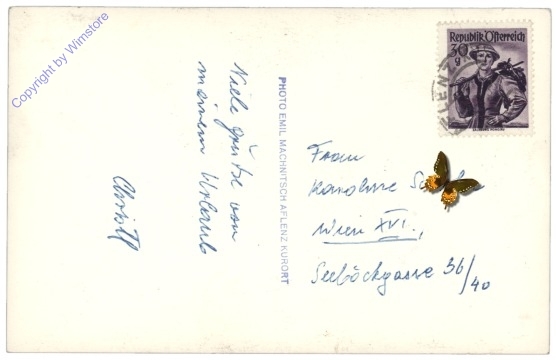 Copyright by Wimstore
Viele Grüße von
meinem Urlaub
Christl
PHOTO EMIL MACHNITSCH AFLENZ KURORT
Republik Österreich
30
g
AFLENZ
Frau
Karoline
Wien XVI.,
Seeböckgasse 36/40